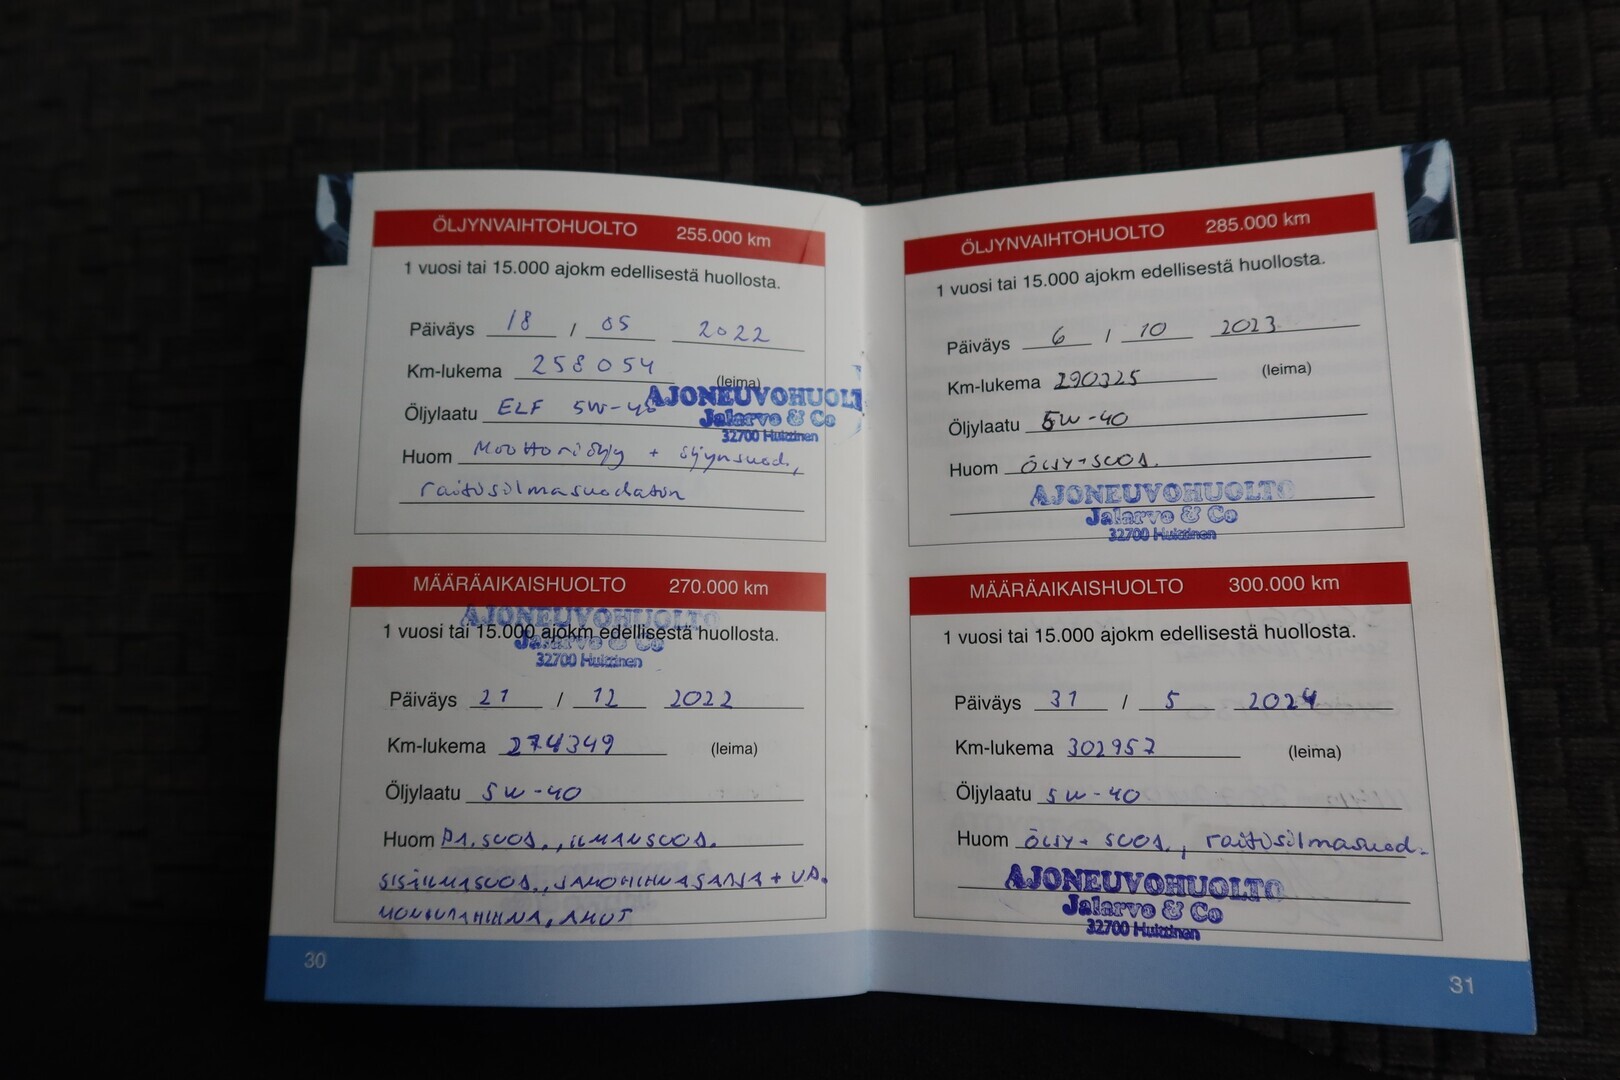 ÖLJYNVAIHTOHUOLTO 255.000 km
1 vuosi tai 15.000 ajokm edellisestä huollosta.
Päiväys 18 / 05 2022
Km-lukema 258054
(leima)
Öljylaatu ELF 5W-40
AJONEUVOHUOLT
Jalarvo & Co
32700 Huittinen
Huom Moottoriöljy + öljynsuod.,
raitisilmasuodatin
MÄÄRÄAIKAISHUOLTO 270.000 km
AJONEUVOHUOLTO
1 vuosi tai 15.000 ajokm edellisestä huollosta.
Jalarvo & Co
32700 Huittinen
Päiväys 21 / 12 2022
Km-lukema 274349 (leima)
Öljylaatu 5W-40
Huom PA.SUOD., ILMANSUOD.
SISÄILMASUOD., JAKOHIHNASARJA + VP.
MONIURAHIHNA, AKUT
30
ÖLJYNVAIHTOHUOLTO 285.000 km
1 vuosi tai 15.000 ajokm edellisestä huollosta.
Päiväys 6 / 10 2023
Km-lukema 290325 (leima)
Öljylaatu 5W-40
Huom ÖLJY+SUOD.
AJONEUVOHUOLTO
Jalarvo & Co
32700 Huittinen
MÄÄRÄAIKAISHUOLTO 300.000 km
1 vuosi tai 15.000 ajokm edellisestä huollosta.
Päiväys 31 / 5 2024
Km-lukema 302957 (leima)
Öljylaatu 5W-40
Huom ÖLJY + SUOD., raitisilmasuod.
AJONEUVOHUOLTO
Jalarvo & Co
32700 Huittinen
31